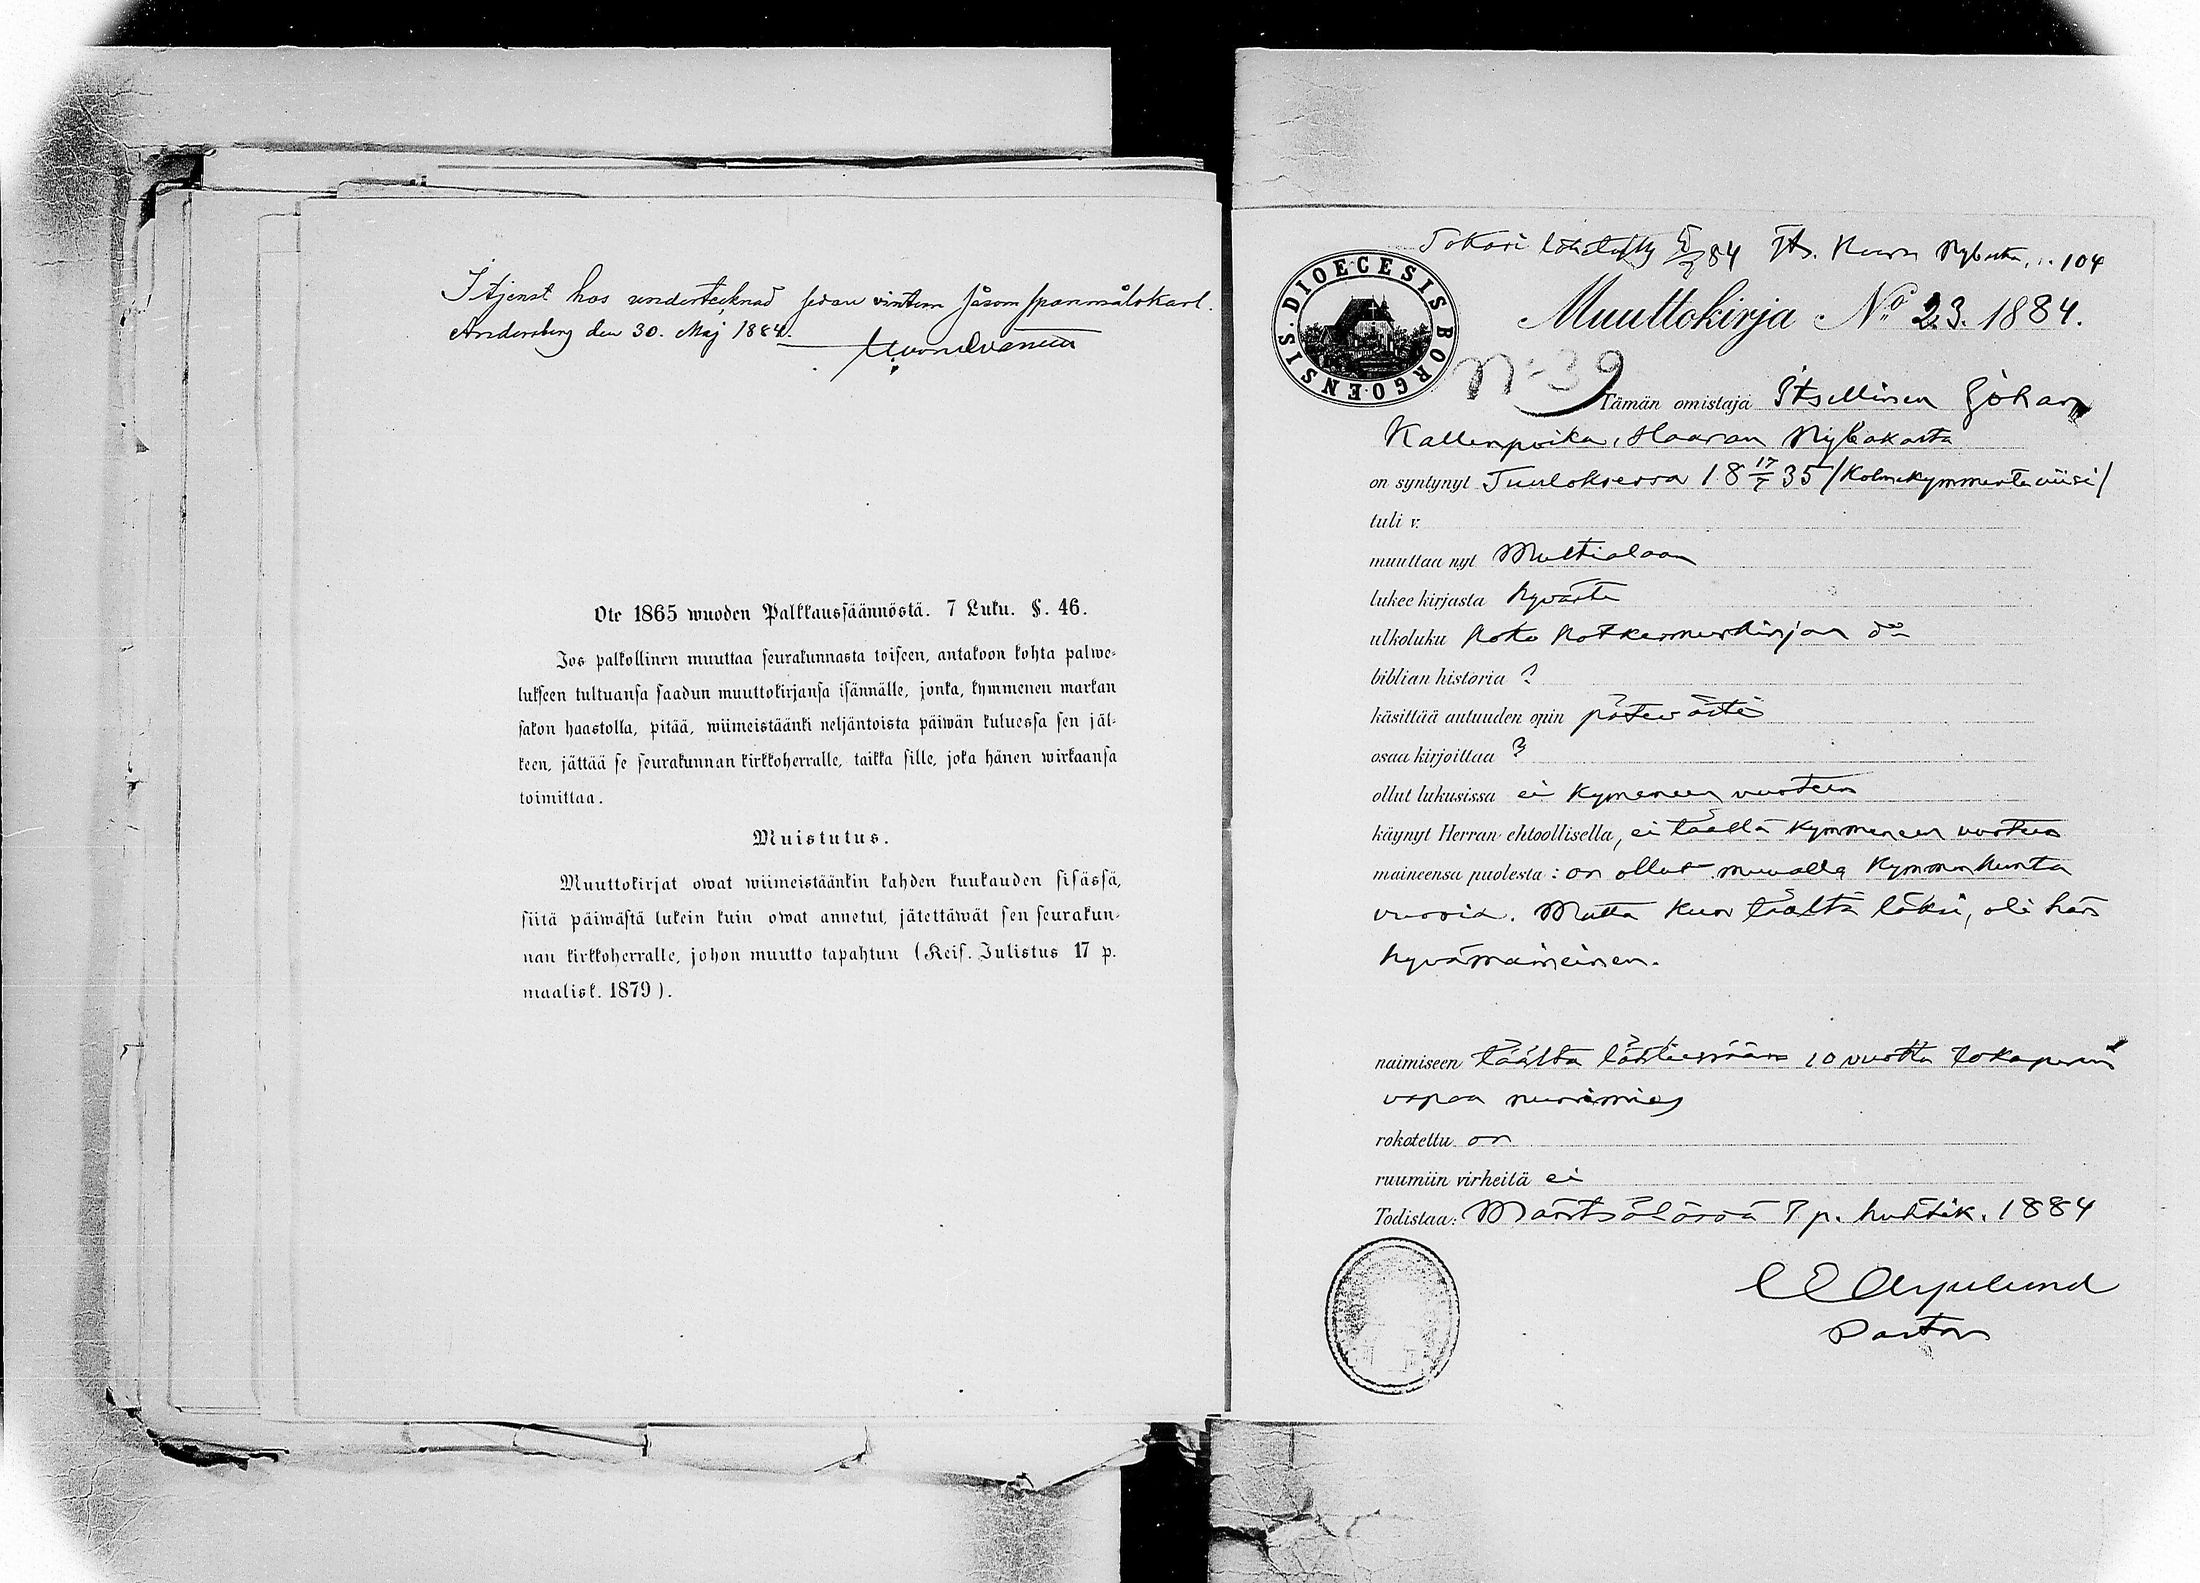 I tjenst hos undertecknad sedan vintern såsom spannmålskarl.
Andersberg den 30. Maj 1884.
Ote 1865 wuoden Palkkaussäännöstä. 7 Luku. §. 46.
Jos palkollinen muuttaa seurakunnasta toiseen, antakoon kohta palwe-
lukseen tultuansa saadun muuttokirjansa isännälle, jonka, kymmenen markan
sakon haastolla, pitää, wiimeistäänki neljäntoista päiwän kuluessa sen jäl-
keen, jättää se seurakunnan kirkkoherralle, taikka sille, joka hänen wirkaansa
toimittaa.
Muistutus.
Muuttokirjat owat wiimeistäänkin kahden kuukauden sisässä,
siitä päiwästä lukein kuin owat annetut, jätettäwät sen seurakun-
nan kirkkoherralle, johon muutto tapahtuu (Keis. Julistus 17 p.
maalisk. 1879).
84 104
DIOECESIS BORGOENSIS.
Muuttokirja No 23. 1884.
N:o 39
Tämän omistaja Itsellinen Johan
Kallenpoika, Haaran Nybakasta
on syntynyt Tuuloksessa 18 17/7 35 /Kolmekymmentäviisi/
tuli v.
muuttaa nyt Multialaan
lukee kirjasta hyvästi
ulkoluku koko katkismuskirjan d:o
biblian historia ?
käsittää autuuden opin pätevästi
osaa kirjoittaa ?
ollut lukusissa ei kymeneen vuoteen
käynyt Herran ehtoollisella, ei täällä kymmeneen vuoteen
maineensa puolesta: on ollut muualla kymmenkunta
vuosia. Mutta kun täältä läksi, oli hän
hyvämaineinen.
naimiseen täältä lähtiessään 10 vuotta takaperin
vapaa nuorimies
rokotettu on
ruumiin virheitä ei
Todistaa: Mäntsälässä 7 p. huhtik. 1884
Pastor